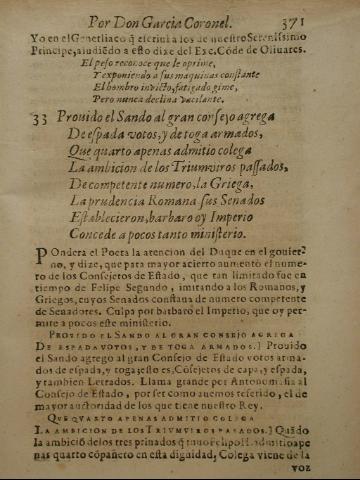 Por Don Garcia Coronel. 371
Yo en el Genetliaco q̃ escriui a los de nuestro Serenissimo
Principe, aludiẽdo a esto dixe del Ex c. Cõde de Oliuares.
El peso reconoce que le oprime,
Y exponiendo a sus maquinas constante
El hombro inuicto, fatigado gime,
Pero nunca declina vacilante.
33 Prouido el Sando al gran consejo agrega
De espada votos, y de toga armados,
Que quarto apenas admitio colega
La ambicion de los Triumuiros passados,
De competente numero, la Griega,
La prudencia Romana sus Senados
Establecieron, barbaro oy Imperio
Concede a pocos tanto ministerio.
POndera el Poeta la atencion del Duque en el gouier-
no, y dize, que para mayor acierto aumentò el nume-
ro de los Consejeros de Estado, que tan limitado fue en
tiempo de Felipe Segundo, imitando a los Romanos, y
Griegos, cuyos Senados constaua de numero competente
de Senadores. Culpa por barbaro el Imperio, que oy per-
mite a pocos este ministerio.
PROVIDO EL SANDO AL GRAN CONSEJO AGREGA
DE ESPADA VOTOS, Y DE TOGA ARMADOS.] Prouido
el Sando agregò al gran Consejo de Estado votos arma-
dos de espada, y toga, esto es, Cõsejeros de capa, y espada,
y tambien Letrados. Llama grande por Antonomasia al
Consejo de Estado, por ser como auemos referido, el de
mayor auctoridad de los que tiene nuestro Rey.
QVE QVARTO APENAS ADMITIO COLEGA
LA AMBICION DE LOS TRIVMVIROS PASSADOS.] Quãdo
la ambiciõ de los tres priuados q̃ tuuo Felipo II. admitio ape
nas quarto cõpañero en esta dignidad, Colega viene de la
voz